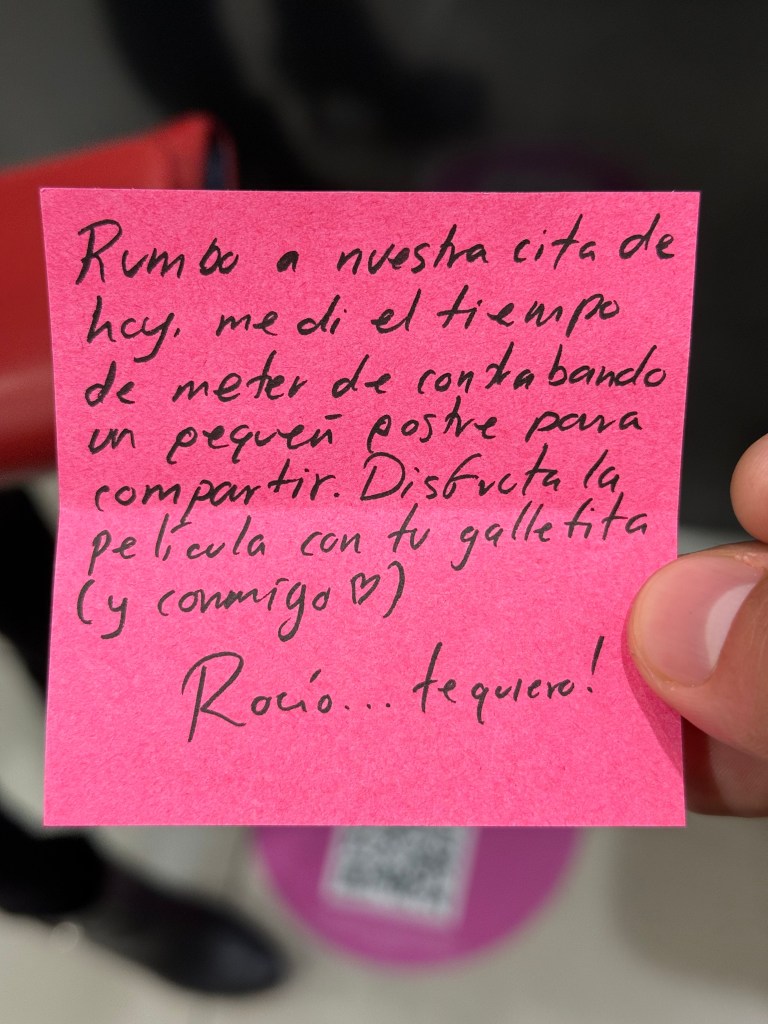 Rumbo a nuestra cita de
hoy, me di el tiempo
de meter de contrabando
un pequeñ postre para
compartir. Disfructa la
película con tu galletita
(y conmigo ♡)
Rocío... te quiero!